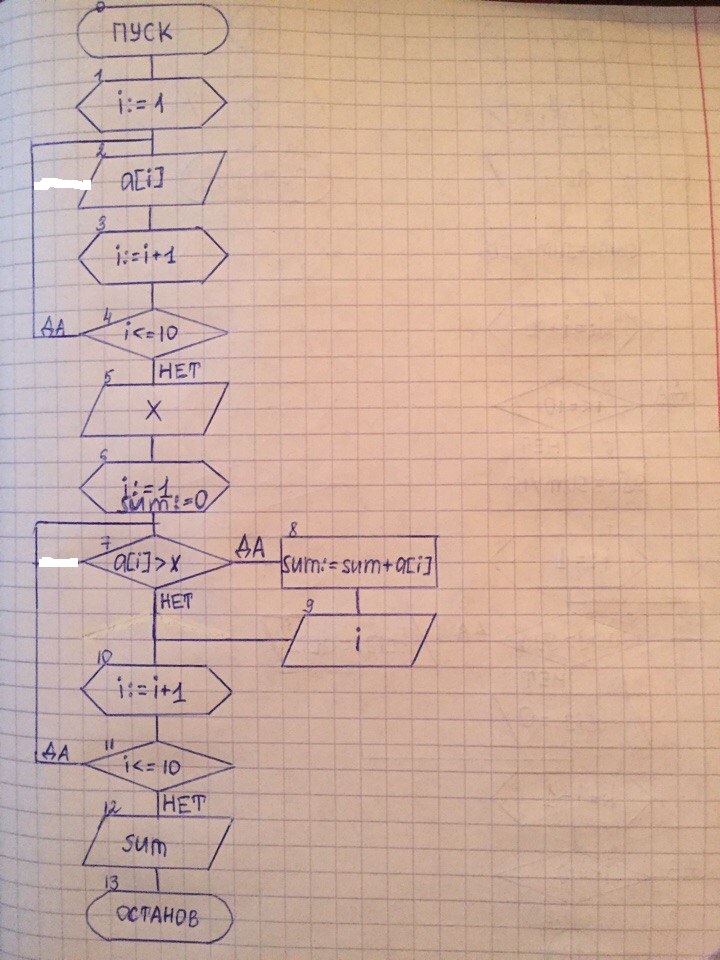 0
ПУСК
1
i:=1
2
a[i]
3
i:=i+1
4
ДА
i<=10
НЕТ
5
X
6
i:=1
sum:=0
7
a[i]>x
ДА
8
sum:=sum+a[i]
НЕТ
9
i
10
i:=i+1
11
ДА
i<=10
НЕТ
12
sum
13
ОСТАНОВ